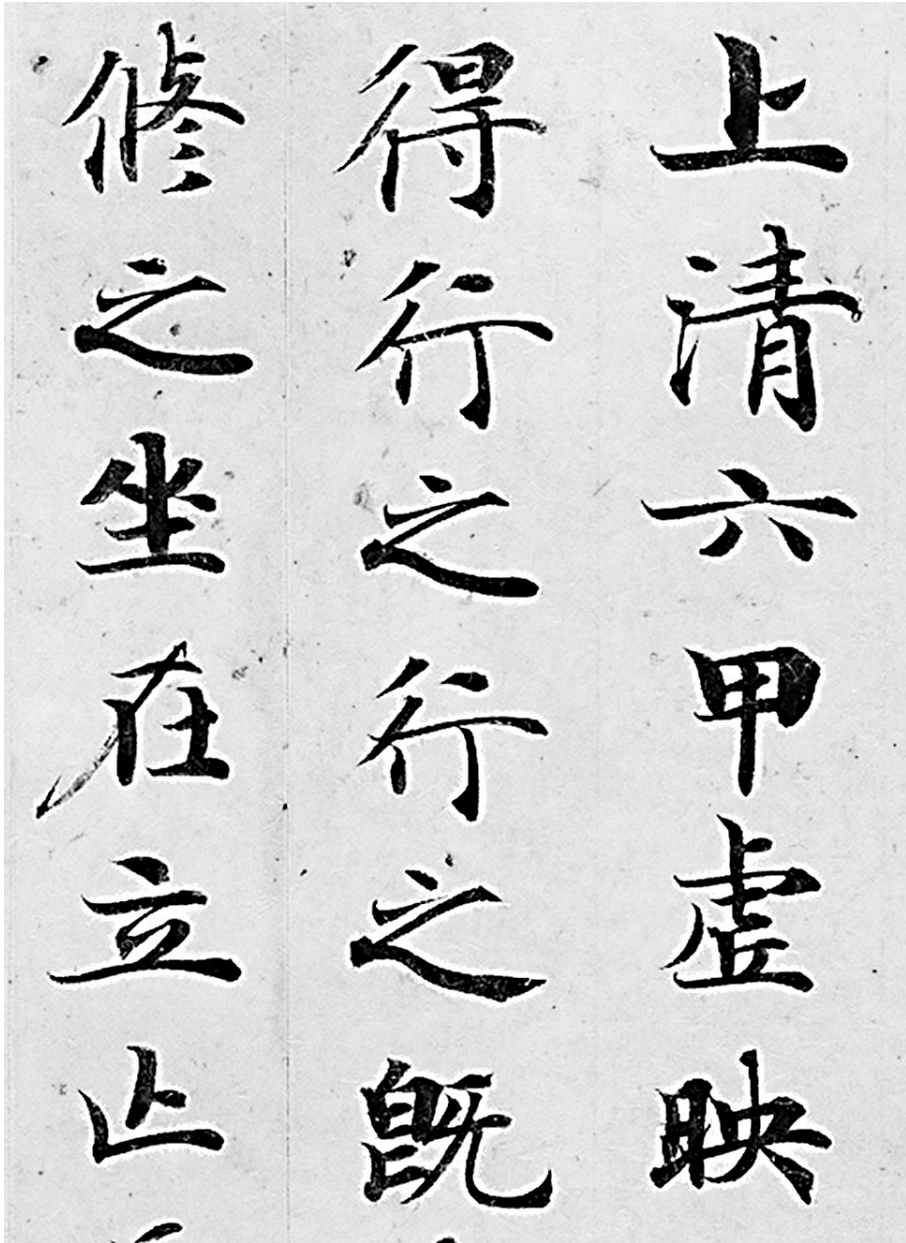 上清六甲虛映
得行之行之既
修之坐在立止